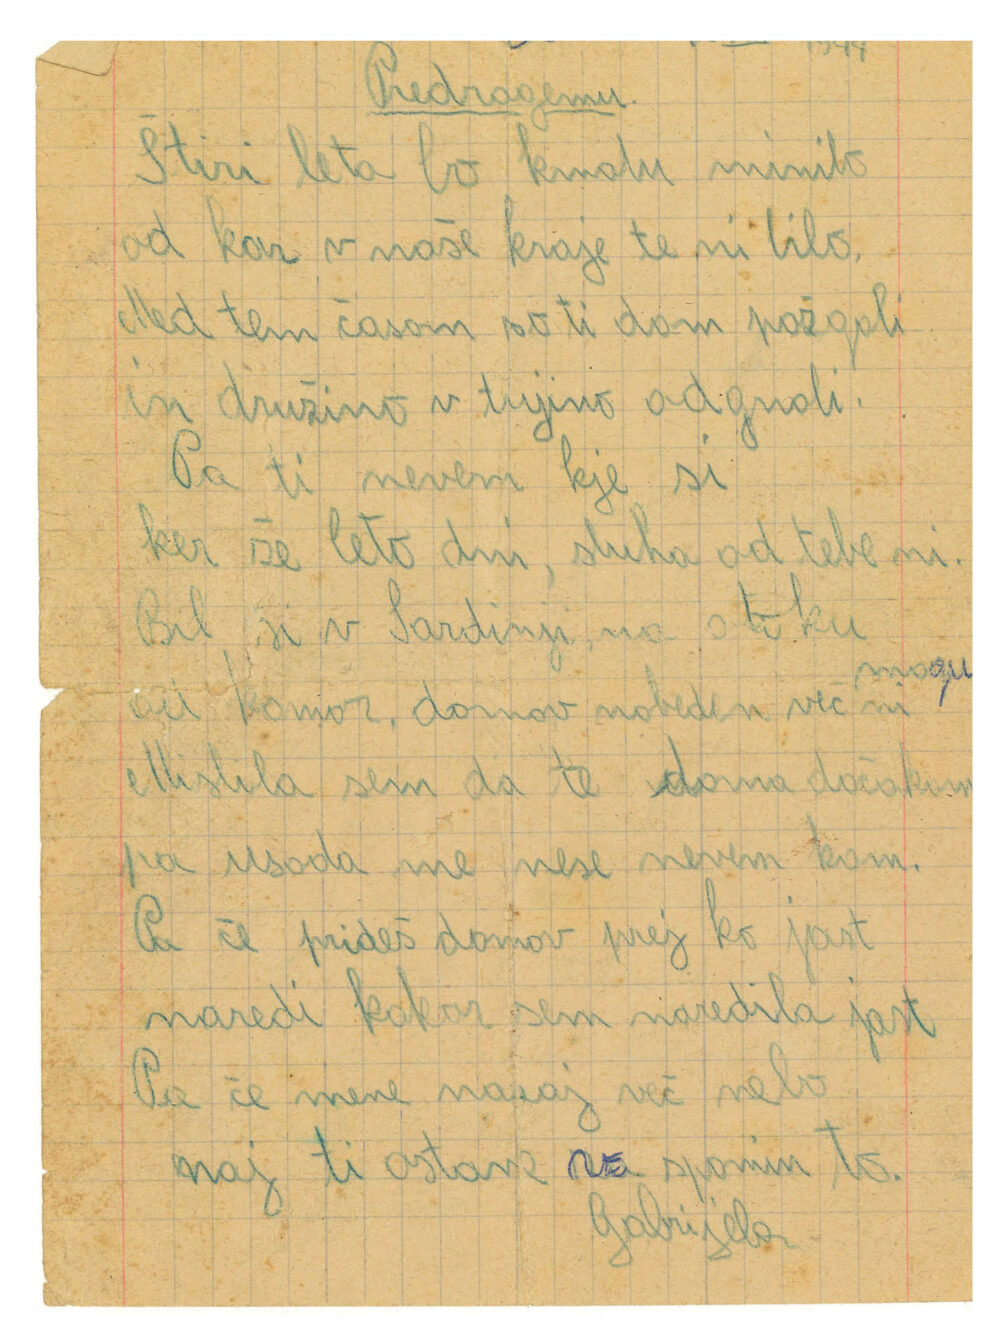 1944
Predragemu.
Štiri leta bo kmalu minilo
od kar v naše kraje te ni bilo.
Med tem časom so ti dom požgali
in družino v tujino odgnali.
Pa ti nevem kje si
ker že leto dni, sluha od tebe ni.
Bil si v Sardinji, na otoku
od komor, domov nobeden več ni mogu
Mislila sem da te doma dočakam
pa usoda me nese nevem kam.
Pa če prideš domov prej ko jast
naredi kakor sem naredila jast
Pa če mene nazaj več nebo
naj ti ostane za spomin to.
Gabrijela